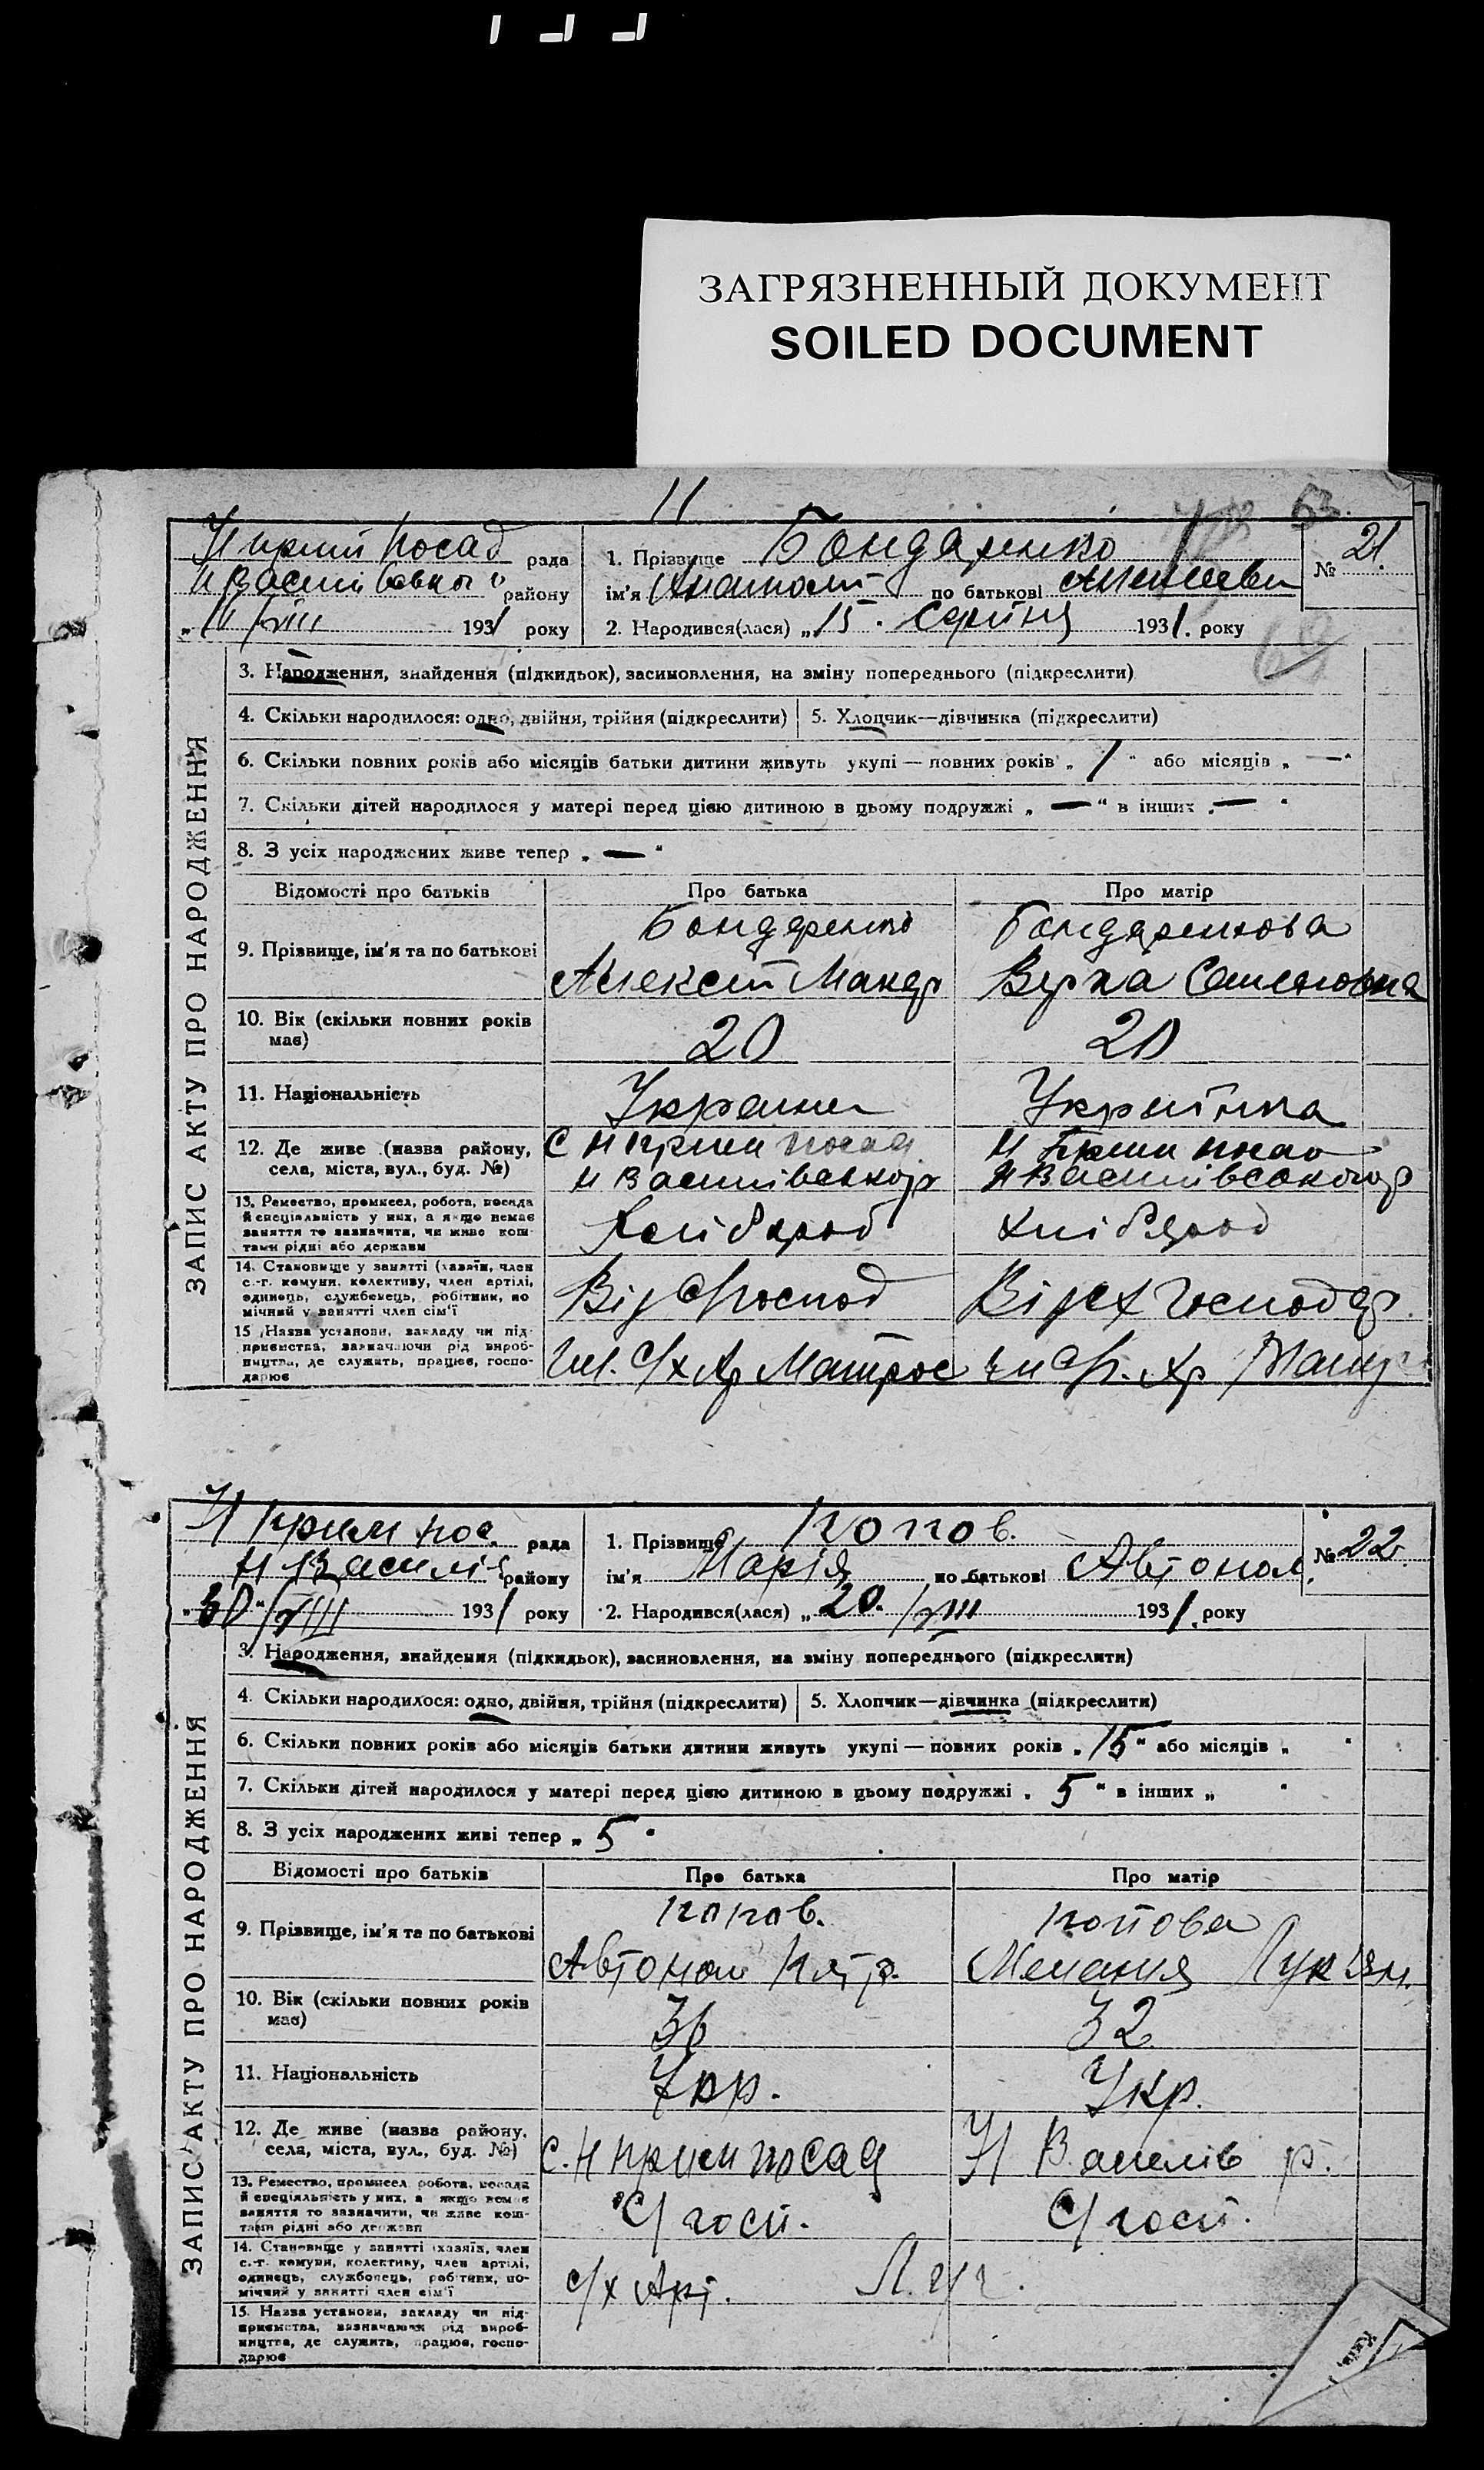 ЗАГРЯЗНЕННЫЙ ДОКУМЕНТ
SOILED DOCUMENT
11
53.
Посад рада
району
VIII 1931 року
1. Прізвище Бондаренко
ім'я Анатолій по батькові
2. Народився(лася) „15. Серпня 1931. року
№ 21.
69
ЗАПИС АКТУ ПРО НАРОДЖЕННЯ
3. Народження, знайдення (підкидьок), засиновлення, на зміну попереднього (підкреслити)
4. Скільки народилося: одно, двійня, трійня (підкреслити)
5. Хлопчик—дівчинка (підкреслити)
6. Скільки повних років або місяців батьки дитини живуть укупі — повних років „ 1 “ або місяців „ — “
7. Скільки дітей народилося у матері перед цією дитиною в цьому подружжі „ — “ в інших „ — “
8. З усіх народжених живе тепер „ — “
Відомості про батьків
Про батька
Про матір
9. Прізвище, ім'я та по батькові
Бондаренко
Бондаренкова
Алексій Макар
Семеновна
10. Вік (скільки повних років має)
20
20
11. Національність
Українка
12. Де живе (назва району, села, міста, вул., буд. №)
посад
13. Ремество, промисел, робота, посада й спеціальність у них, а якщо немає заняття то зазначити, чи живе коштами рідні або держави
Хлібороб
Хлібороб
14. Становище у занятті (хазяїн, член с.-г. комуни, колективу, член артілі, одинець, службовець, робітник, помічний у занятті член сім'ї
15. Назва установи, закладу чи підприємства, зазначаючи рід виробництва, де служить, працює, господарює
С/х Ар Матрос
Н Крим пос. рада
Н Василів району
„30“ VIII 1931 року
1. Прізвище Попов.
ім'я Марія по батькові Автоном.
2. Народився(лася) „20. VIII 1931. року
№ 22.
ЗАПИС АКТУ ПРО НАРОДЖЕННЯ
3. Народження, знайдення (підкидьок), засиновлення, на зміну попереднього (підкреслити)
4. Скільки народилося: одно, двійня, трійня (підкреслити)
5. Хлопчик—дівчинка (підкреслити)
6. Скільки повних років або місяців батьки дитини живуть укупі — повних років „ 15 “ або місяців „ “
7. Скільки дітей народилося у матері перед цією дитиною в цьому подружжі „ 5 “ в інших „ “
8. З усіх народжених живі тепер „ 5 “
Відомості про батьків
Про батька
Про матір
9. Прізвище, ім'я та по батькові
Попов.
Попова
Автоном
Мелания Лукіян.
10. Вік (скільки повних років має)
36
32
11. Національність
Укр.
Укр.
12. Де живе (назва району, села, міста, вул., буд. №)
С. Н Крим посад
Н Василів р.
13. Ремество, промисел, робота, посада й спеціальність у них, а якщо немає заняття то зазначити, чи живе коштами рідні або держави
С/госп.
С/госп.
14. Становище у занятті (хазяїн, член с.-г. комуни, колективу, член артілі, одинець, службовець, робітник, помічний у занятті член сім'ї
с/х Арт.
15. Назва установи, закладу чи підприємства, зазначаючи рід виробництва, де служить, працює, господарює